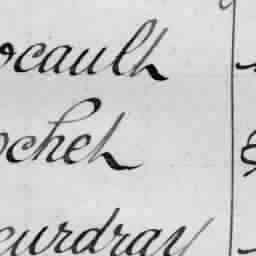 ocault
ochet
eurdray